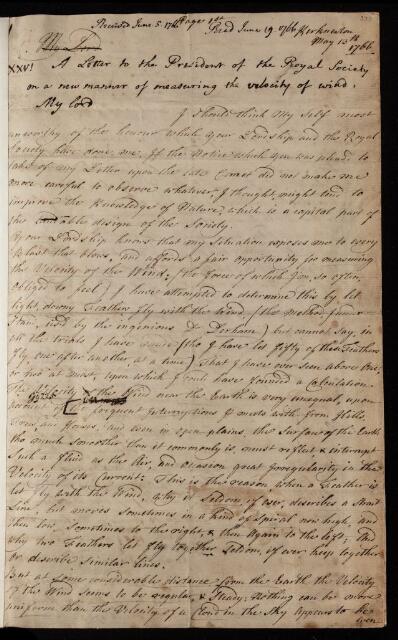 Received June 5. 1766 Read June 19. 1766 Kirknewton
May 15th
1766.
My Lord
XXVI
A Letter to the President of the Royal Society
on a new manner of measuring the velocity of wind.
My lord
I should think My self most
unworthy of the honour which your Lordship and the Royal
Society have done me, If the Notice which you was pleasd to
take of my Letter upon the late Comet did not make me
more careful to observe whatever I thought might tend to
improve the Knowledge of Nature, which is a capital part of
the design of the Society.
Your Lordship knows that my Situation exposes me to every
blast that blows, and affords a fair opportunity for measuring
the Velocity of the Wind, (the force of which I'm so often
obliged to feel) I have attempted to determine this by let
light, downy Feathers fly with the wind, (the method
usd by the ingenious Dr Derham) but cannot say, in
all the trials I have made (tho I have let fifty of these Feathers
fly one after another, at a time) That I have ever seen above one,
or two at most, upon which I could have founded a Calculation.
The Velocity of the Wind near the Earth is very unequal, upon
account of the frequent Interruptions it meets with from Hills
Trees, and Houses, and even in open plains, the Surface of the Earth
tho much smoother than it commonly is, must reflect & interrupt
Such a fluid as the Air, and occasion great Irregularity in the
Velocity of its Current: This is the reason when a Feather is
let fly with the Wind, why it Seldom if ever, describes a Strait
Line, but moves sometimes in a kind of Spiral now high, and
then low, Sometimes to the right, & then again to the left; And
why two Feathers let fly together Seldom, if ever keep together
or describe Similar lines.
But at Some considerable distance from the Earth the Velocity
of the Wind seems to be regular, & Steady; Nothing can be more
uniform than the Velocity of a Cloud in the Sky appears to be
even